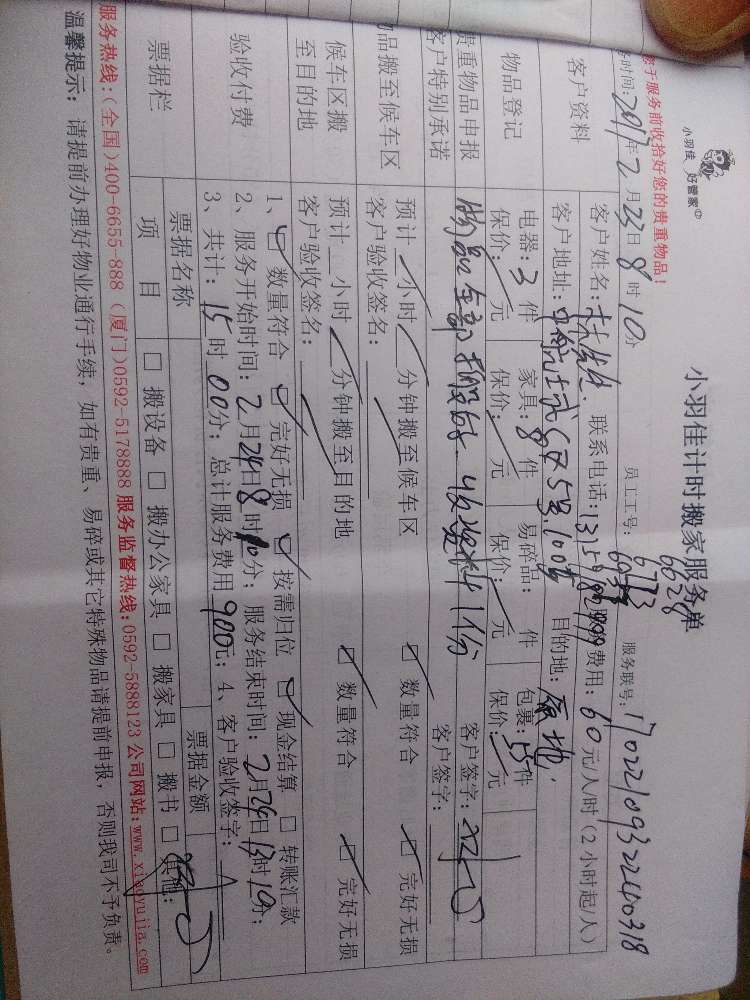 小羽佳 好管家
小羽佳计时搬家服务单
您于服务前收拾好您的贵重物品！
时间：2017年2月23日8时10分 员工工号：6713 6628 服务联号：17022109322400318
客户资料
客户姓名： 联系电话： 费用：60元/人/时（2小时起/人）
客户地址： 目的地：原地
物品登记
电器：3件 家具：8件 易碎品： 件 包裹：15件
保价： 元 保价： 元 保价： 元 保价： 元
贵重物品申报 物品全部 客户签字：
客户特别承诺 客户签字：
品搬至候车区
预计 小时 分钟搬至候车区 ☑ 数量符合 ☑ 完好无损
客户验收签名：
候车区搬至目的地
预计 小时 分钟搬至目的地 ☑ 数量符合 ☑ 完好无损
客户验收签名：
验收付费
1、☑ 数量符合 ☑ 完好无损 ☑ 按需归位 ☑ 现金结算 □ 转账汇款
2、服务开始时间：2月24日8时10分； 服务结束时间：2月24日13时19分；
3、共计：15时00分；总计服务费用900元；4、客户验收签字：
票据栏
票据名称 票据金额
项目 □ 搬设备 □ 搬办公家具 □ 搬家具 □ 搬书 □ 其他：
服务热线：(全国)400-6655-888 (厦门)0592-5178888 服务监督热线：0592-5888123 公司网站：www.xiaoyujia.com
温馨提示：请提前办理好物业通行手续，如有贵重、易碎或其它特殊物品请提前申报，否则我司不予负责。